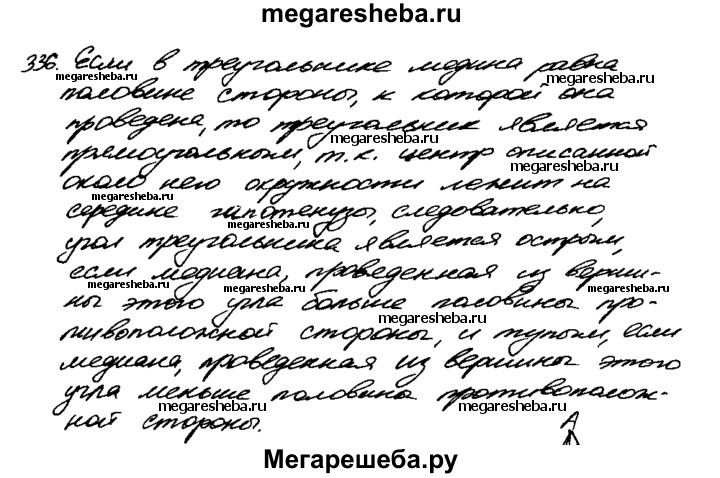 megaresheba.ru
336. Если в треугольнике медина равна
megaresheba.ru megaresheba.ru
половине стороны, к которой она
проведена, то треугольник является
megaresheba.ru
прямоугольным, т.к. центр описанной
megaresheba.ru
около него окружности лежит на
megaresheba.ru
середине гипотенузы, следовательно,
megaresheba.ru
угол треугольника является острым,
если медиана, проведенная из верши-
megaresheba.ru
ны этого угла больше половины про-
megaresheba.ru
тивоположной стороны, и тупым, если
медиана, проведенная из вершины этого
megaresheba.ru
угла меньше половина противополож-
megaresheba.ru megaresheba.ru
ной стороны. А
Мегарешеба.ру